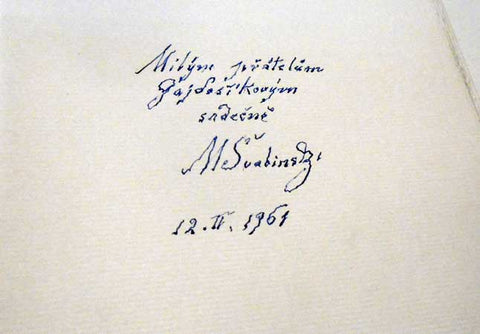 Milým přátelům
Gajdošíkovým
srdečně
MŠvabinský
12. IV. 1961